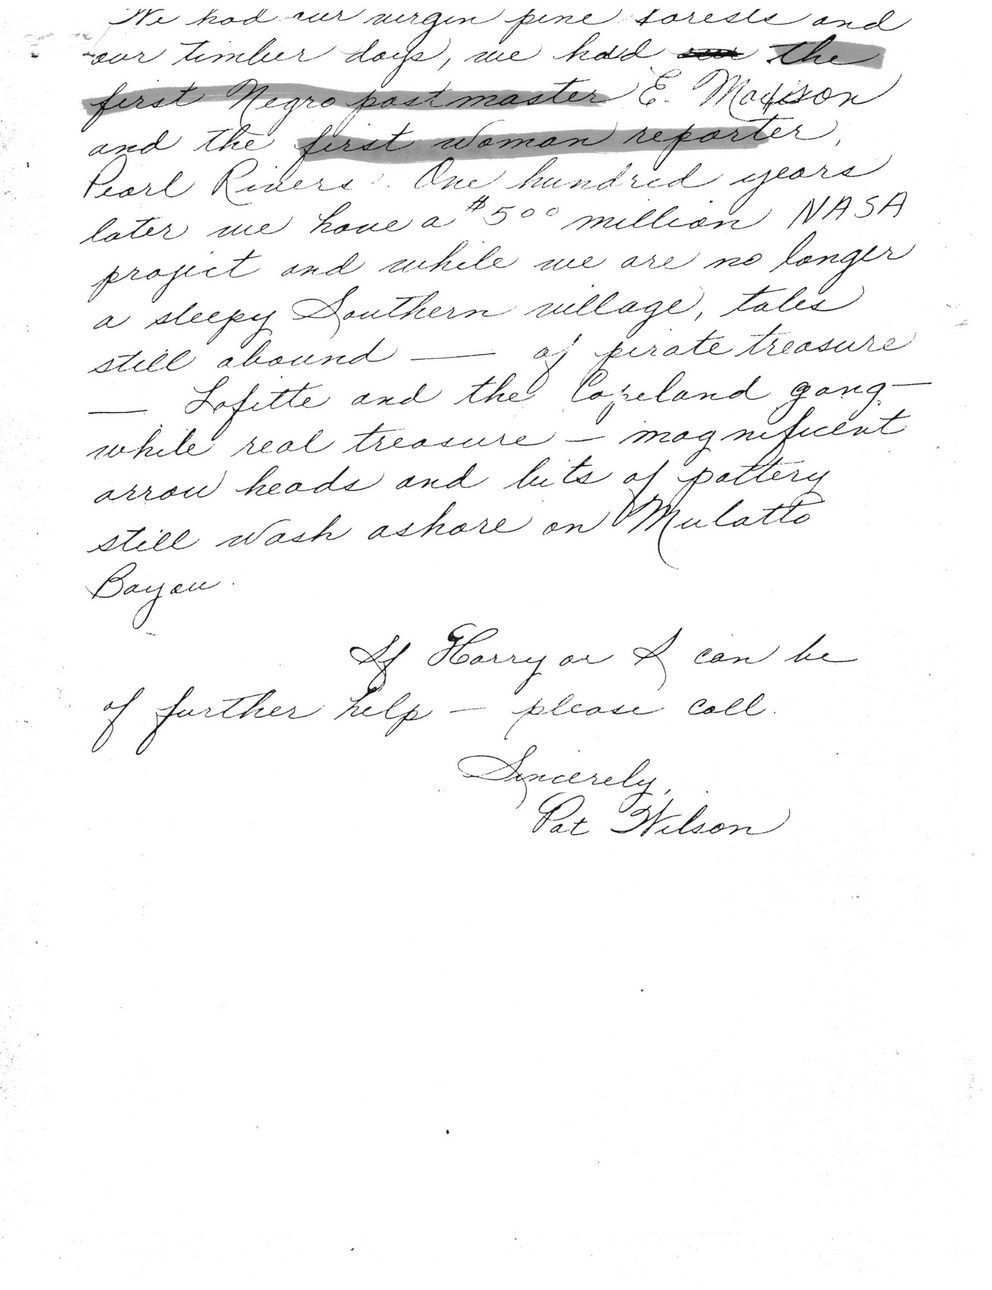 We had our virgin pine forests and
our timber days, we had the
first Negro postmaster E. Madison
and the first woman reporter,
Pearl Rivers. One hundred years
later we have a $500 million NASA
project and while we are no longer
a sleepy Southern village, tales
still abound — of pirate treasure
— Lafitte and the Copeland gang —
while real treasure — magnificent
arrow heads and bits of pottery
still wash ashore on Mulatto
Bayou.
If Harry or I can be
of further help — please call.
Sincerely,
Pat Wilson